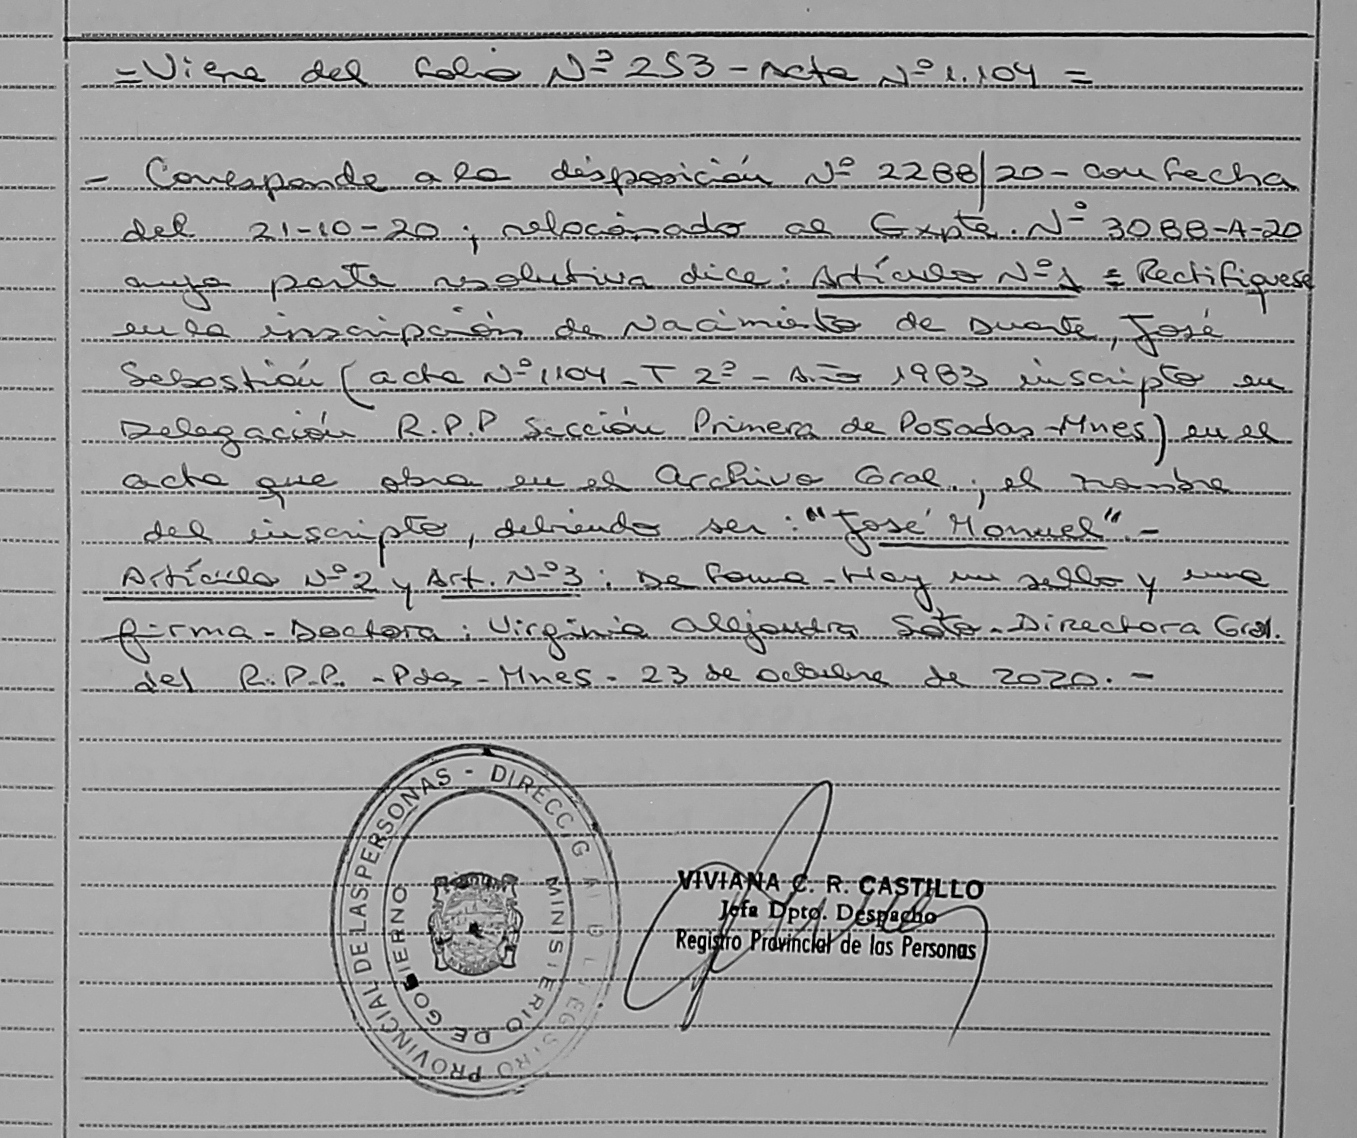 =Viene del folio Nº 253 - Acta Nº 1.104 =
- Corresponde a la disposición Nº 2288/20 - con fecha
del 21-10-20; relacionado al Expte. Nº 3088-A-20
cuya parte resolutiva dice: Artículo Nº 1 = Rectifíquese
en la inscripción de Nacimiento de Duarte, José
Sebastián (acta Nº 1104 - T 2º - Año 1983 inscripto en
Delegación R.P.P Sección Primera de Posadas - Mnes) en el
acta que obra en el Archivo Gral.; el nombre
del inscripto, debiendo ser: "José Manuel". -
Artículo Nº 2 y Art. Nº 3: De forma - Hay un sello y una
firma - Doctora: Virginia Alejandra Soto - Directora Gral.
del R.P.P. - Pdas - Mnes - 23 de octubre de 2020. -
REGISTRO PROVINCIAL DE LAS PERSONAS - DIRECC/G
MINISTERIO DE GOBIERNO
VIVIANA C. R. CASTILLO
Jefa Dpto. Despacho
Registro Provincial de las Personas